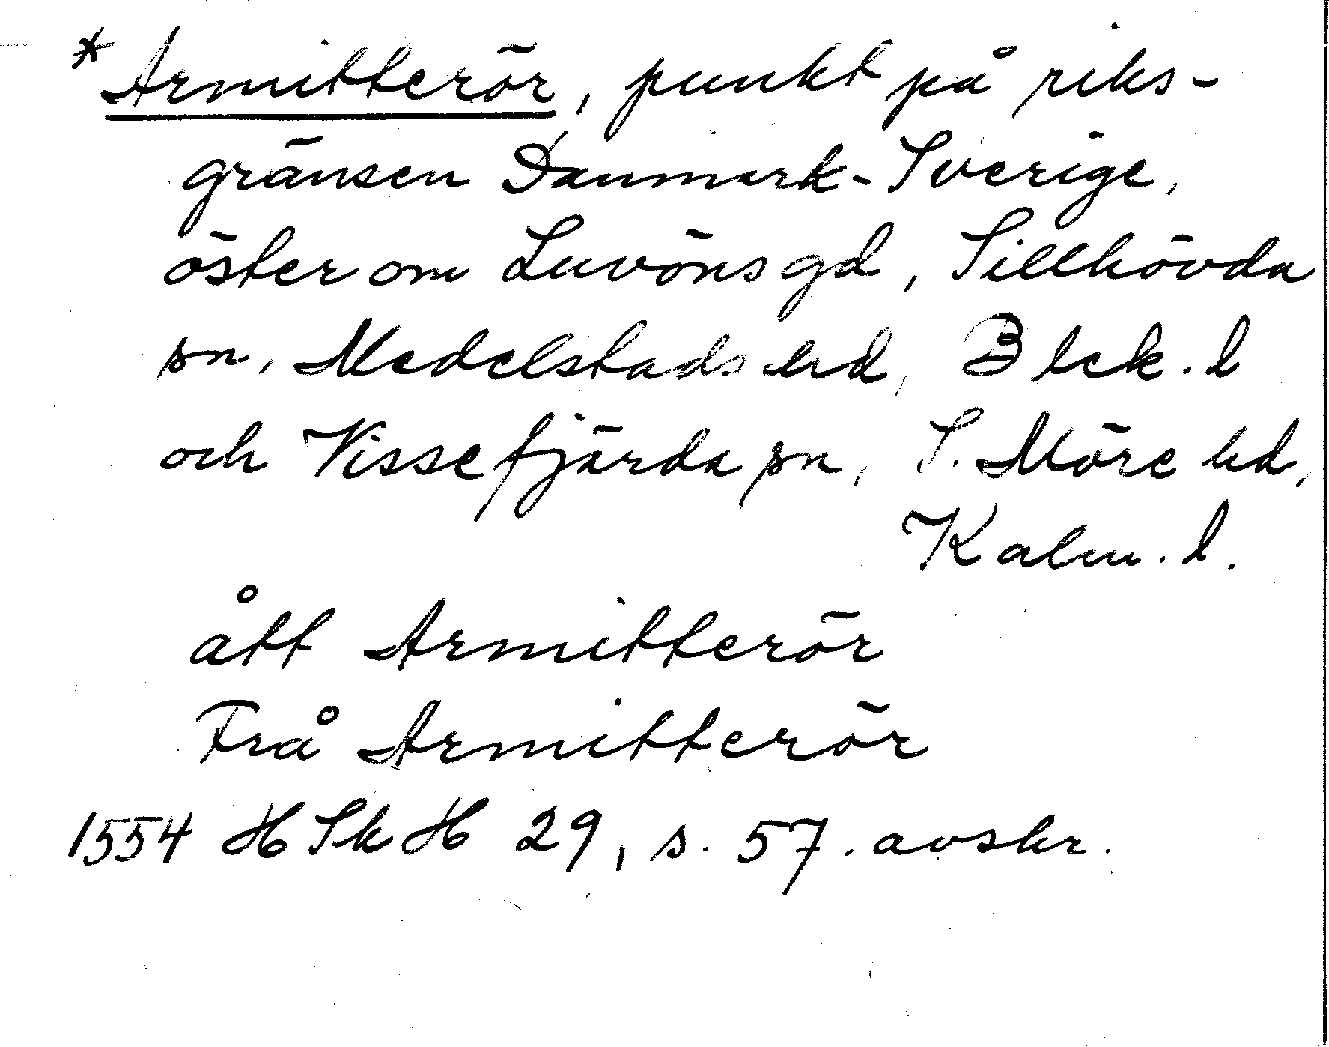 *Armitterör, punkt på riks-
gränsen Danmark-Sverige,
öster om Luvöns gd, Sillhövda
sn, Medelstads hd, Blek. l
och Vissefjärda sn, S. Möre hd,
Kalm. l.
ått Armitterör
Frå Armitterör
1554 HSkH 29, s. 57. avskr.